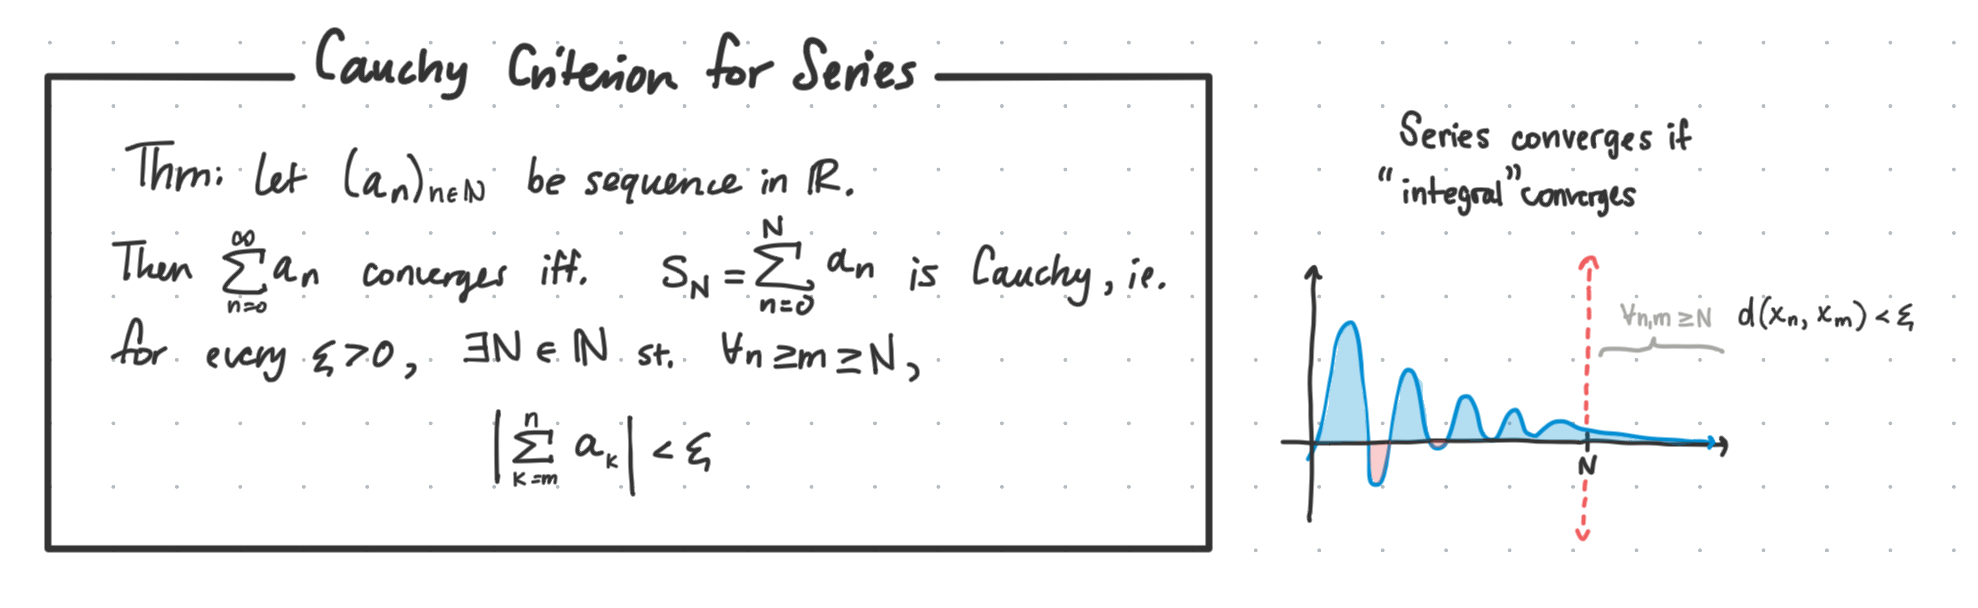 Cauchy Criterion for Series
Thm: Let (aₙ)ₙ∈ℕ be sequence in ℝ.
Then ∑_{n=0}^{∞} aₙ converges iff. S_N = ∑_{n=0}^{N} aₙ is Cauchy, ie.
for every ξ > 0, ∃N ∈ ℕ st. ∀n ≥ m ≥ N,
|∑_{k=m}^{n} a_k| < ξ
Series converges if
"integral" converges
∀n,m ≥ N d(xₙ, xₘ) < ξ
N